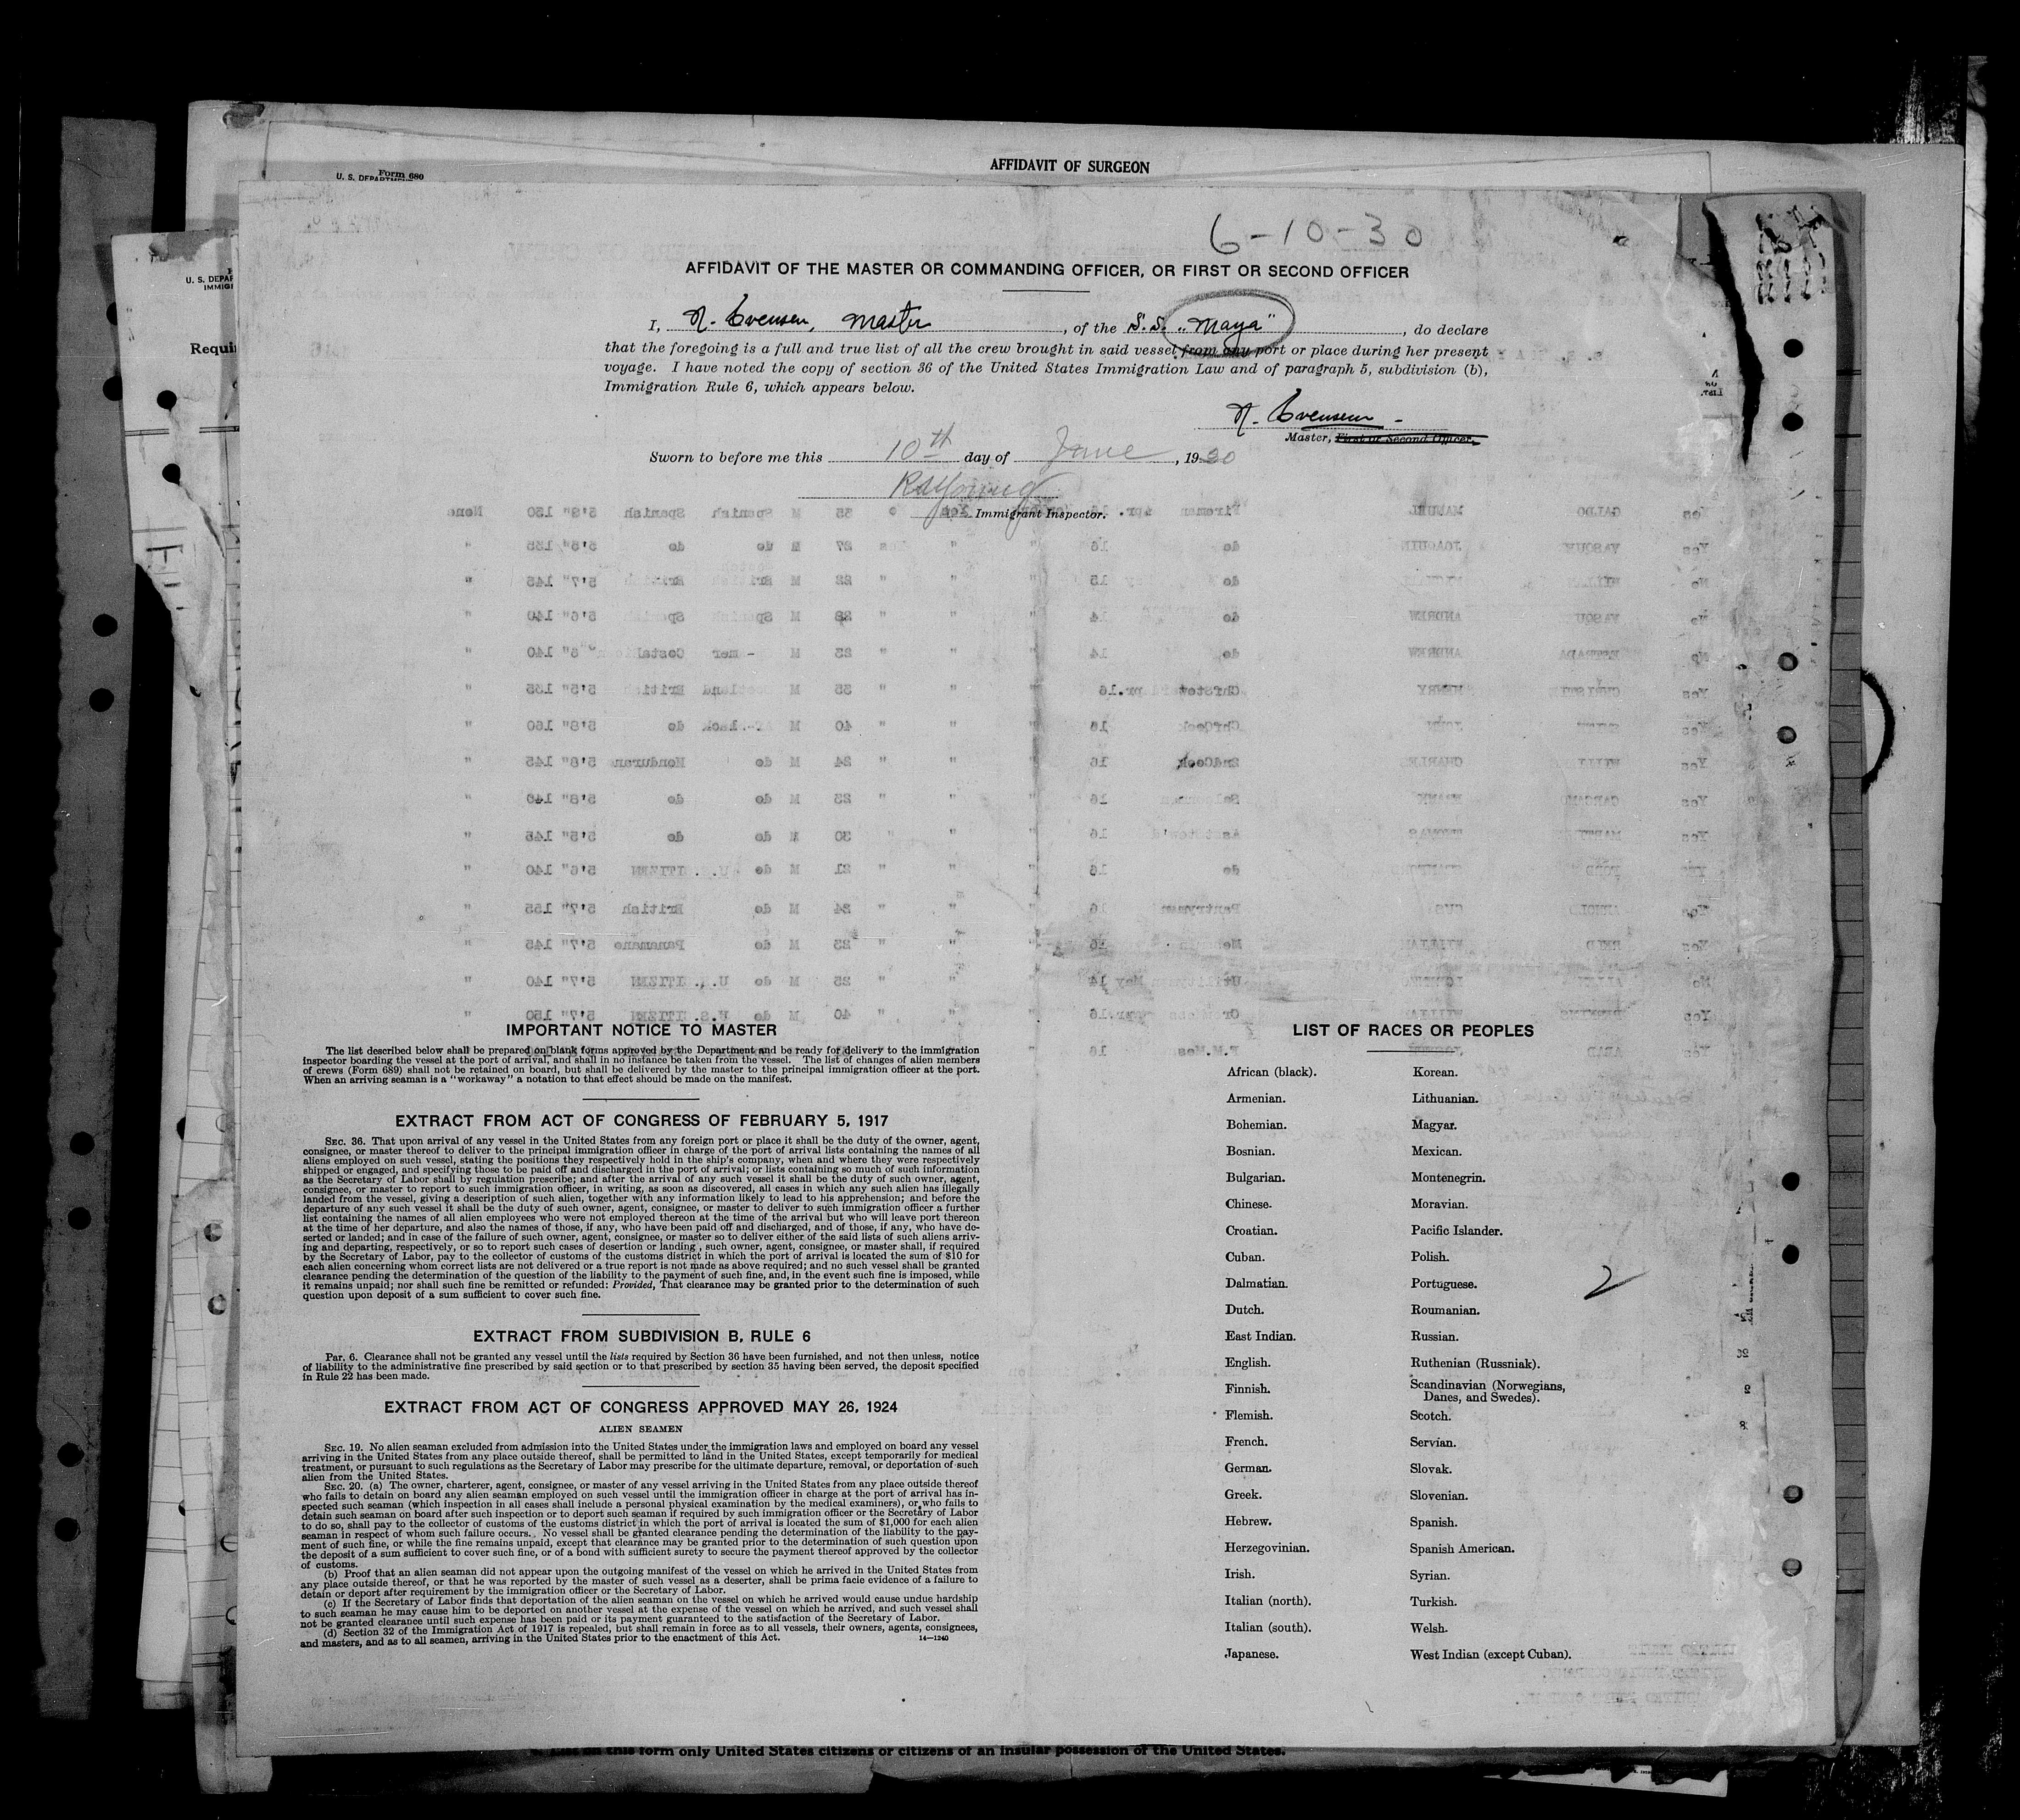 AFFIDAVIT OF SURGEON
Form 680
U. S. DEPARTM
6-10-30
AFFIDAVIT OF THE MASTER OR COMMANDING OFFICER, OR FIRST OR SECOND OFFICER
I, N. Evensen, Master, of the S.S. "Maya", do declare
that the foregoing is a full and true list of all the crew brought in said vessel from any port or place during her present
voyage. I have noted the copy of section 36 of the United States Immigration Law and of paragraph 5, subdivision (b),
Immigration Rule 6, which appears below.
N. Evensen
Master, First or Second Officer.
Sworn to before me this 10th day of June, 1930
Immigrant Inspector.
IMPORTANT NOTICE TO MASTER
The list described below shall be prepared on blank forms approved by the Department and be ready for delivery to the immigration
inspector boarding the vessel at the port of arrival, and shall in no instance be taken from the vessel. The list of changes of alien members
of crews (Form 689) shall not be retained on board, but shall be delivered by the master to the principal immigration officer at the port.
When an arriving seaman is a "workaway" a notation to that effect should be made on the manifest.
EXTRACT FROM ACT OF CONGRESS OF FEBRUARY 5, 1917
SEC. 36. That upon arrival of any vessel in the United States from any foreign port or place it shall be the duty of the owner, agent,
consignee, or master thereof to deliver to the principal immigration officer in charge of the port of arrival lists containing the names of all
aliens employed on such vessel, stating the positions they respectively hold in the ship's company, when and where they were respectively
shipped or engaged, and specifying those to be paid off and discharged in the port of arrival; or lists containing so much of such information
as the Secretary of Labor shall by regulation prescribe; and after the arrival of any such vessel it shall be the duty of such owner, agent,
consignee, or master to report to such immigration officer, in writing, as soon as discovered, all cases in which any such alien has illegally
landed from the vessel, giving a description of such alien, together with any information likely to lead to his apprehension; and before the
departure of any such vessel it shall be the duty of such owner, agent, consignee, or master to deliver to such immigration officer a further
list containing the names of all alien employees who were not employed thereon at the time of the arrival but who will leave port thereon
at the time of her departure, and also the names of those, if any, who have been paid off and discharged, and of those, if any, who have de-
serted or landed; and in case of the failure of such owner, agent, consignee, or master so to deliver either of the said lists of such aliens arriv-
ing and departing, respectively, or so to report such cases of desertion or landing, such owner, agent, consignee, or master shall, if required
by the Secretary of Labor, pay to the collector of customs of the customs district in which the port of arrival is located the sum of $10 for
each alien concerning whom correct lists are not delivered or a true report is not made as above required; and no such vessel shall be granted
clearance pending the determination of the question of the liability to the payment of such fine, and, in the event such fine is imposed, while
it remains unpaid; nor shall such fine be remitted or refunded: Provided, That clearance may be granted prior to the determination of such
question upon deposit of a sum sufficient to cover such fine.
EXTRACT FROM SUBDIVISION B, RULE 6
Par. 6. Clearance shall not be granted any vessel until the lists required by Section 36 have been furnished, and not then unless, notice
of liability to the administrative fine prescribed by said section or to that prescribed by section 35 having been served, the deposit specified
in Rule 22 has been made.
EXTRACT FROM ACT OF CONGRESS APPROVED MAY 26, 1924
ALIEN SEAMEN
SEC. 19. No alien seaman excluded from admission into the United States under the immigration laws and employed on board any vessel
arriving in the United States from any place outside thereof, shall be permitted to land in the United States, except temporarily for medical
treatment, or pursuant to such regulations as the Secretary of Labor may prescribe for the ultimate departure, removal, or deportation of such
alien from the United States.
SEC. 20. (a) The owner, charterer, agent, consignee, or master of any vessel arriving in the United States from any place outside thereof
who fails to detain on board any alien seaman employed on such vessel until the immigration officer in charge at the port of arrival has in-
spected such seaman (which inspection in all cases shall include a personal physical examination by the medical examiners), or who fails to
detain such seaman on board after such inspection or to deport such seaman if required by such immigration officer or the Secretary of Labor
to do so, shall pay to the collector of customs of the customs district in which the port of arrival is located the sum of $1,000 for each alien
seaman in respect of whom such failure occurs. No vessel shall be granted clearance pending the determination of the liability to the pay-
ment of such fine, or while the fine remains unpaid, except that clearance may be granted prior to the determination of such question upon
the deposit of a sum sufficient to cover such fine, or of a bond with sufficient surety to secure the payment thereof approved by the collector
of customs.
(b) Proof that an alien seaman did not appear upon the outgoing manifest of the vessel on which he arrived in the United States from
any place outside thereof, or that he was reported by the master of such vessel as a deserter, shall be prima facie evidence of a failure to
detain or deport after requirement by the immigration officer or the Secretary of Labor.
(c) If the Secretary of Labor finds that deportation of the alien seaman on the vessel on which he arrived would cause undue hardship
to such seaman he may cause him to be deported on another vessel at the expense of the vessel on which he arrived, and such vessel shall
not be granted clearance until such expense has been paid or its payment guaranteed to the satisfaction of the Secretary of Labor.
(d) Section 32 of the Immigration Act of 1917 is repealed, but shall remain in force as to all vessels, their owners, agents, consignees,
and masters, and as to all seamen, arriving in the United States prior to the enactment of this Act. 14—1240
LIST OF RACES OR PEOPLES
African (black). Korean.
Armenian. Lithuanian.
Bohemian. Magyar.
Bosnian. Mexican.
Bulgarian. Montenegrin.
Chinese. Moravian.
Croatian. Pacific Islander.
Cuban. Polish.
Dalmatian. Portuguese.
2
Dutch. Roumanian.
East Indian. Russian.
English. Ruthenian (Russniak).
Finnish. Scandinavian (Norwegians,
Danes, and Swedes).
Flemish. Scotch.
French. Servian.
German. Slovak.
Greek. Slovenian.
Hebrew. Spanish.
Herzegovinian. Spanish American.
Irish. Syrian.
Italian (north). Turkish.
Italian (south). Welsh.
Japanese. West Indian (except Cuban).
this form only United States citizens or citizens of an insular possession of the United States.